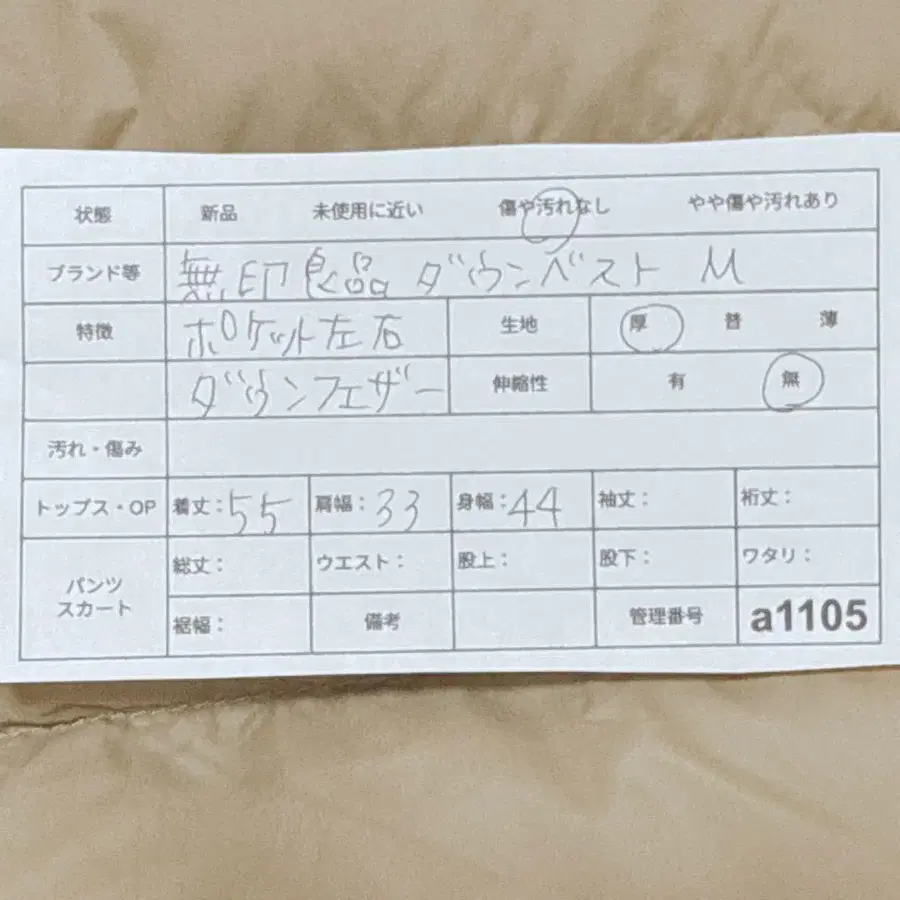 状態 新品 未使用に近い 傷や汚れなし やや傷や汚れあり
ブランド等 無印良品 ダウンベスト M
特徴 ポケット左右 生地 厚 普 薄
ダウンフェザー 伸縮性 有 無
汚れ・傷み
トップス・OP 着丈：55 肩幅：33 身幅：44 袖丈： 裄丈：
パンツ スカート 総丈： ウエスト： 股上： 股下： ワタリ：
裾幅： 備考 管理番号 a1105